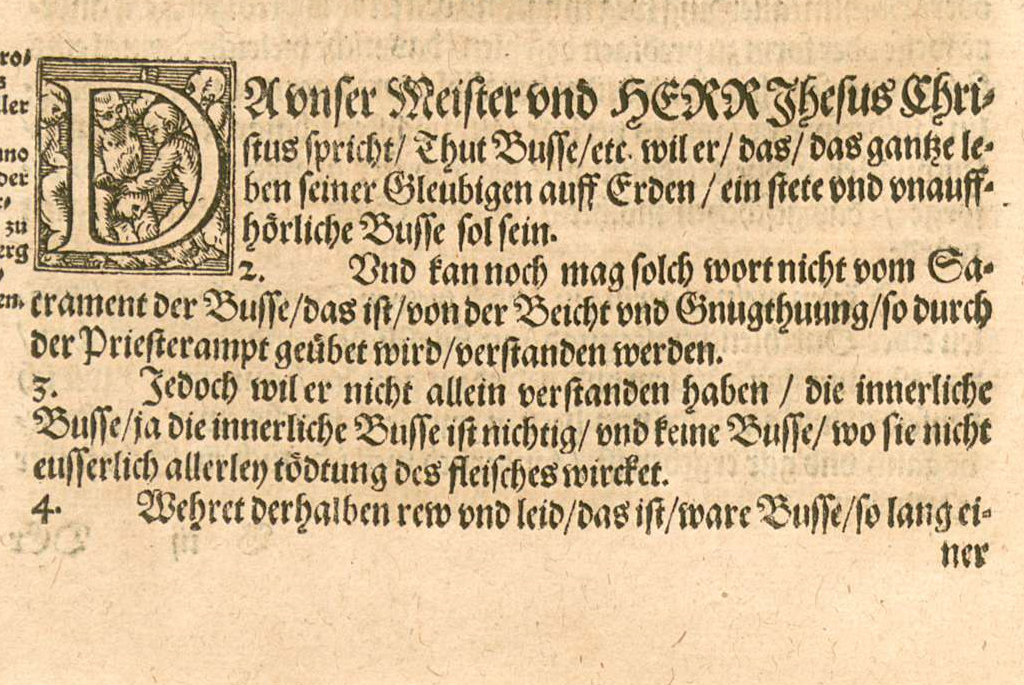 DA vnser Meister vnd HERR Jhesus Chri-
stus spricht/ Thut Busse/etc. wil er/ das/ das gantze le-
ben seiner Gleubigen auff Erden / ein stete vnd vnauff-
hörliche Busse sol sein.
2. Vnd kan noch mag solch wort nicht vom Sa-
crament der Busse/das ist/von der Beicht vnd Gnugthuung/so durch
der Priesterampt geübet wird/verstanden werden.
3. Jedoch wil er nicht allein verstanden haben / die innerliche
Busse/ja die innerliche Busse ist nichtig/ vnd keine Busse/ wo sie nicht
eusserlich allerley tödtung des fleisches wircket.
4. Wehret derhalben rew vnd leid/das ist/ware Busse/so lang ei-
ner